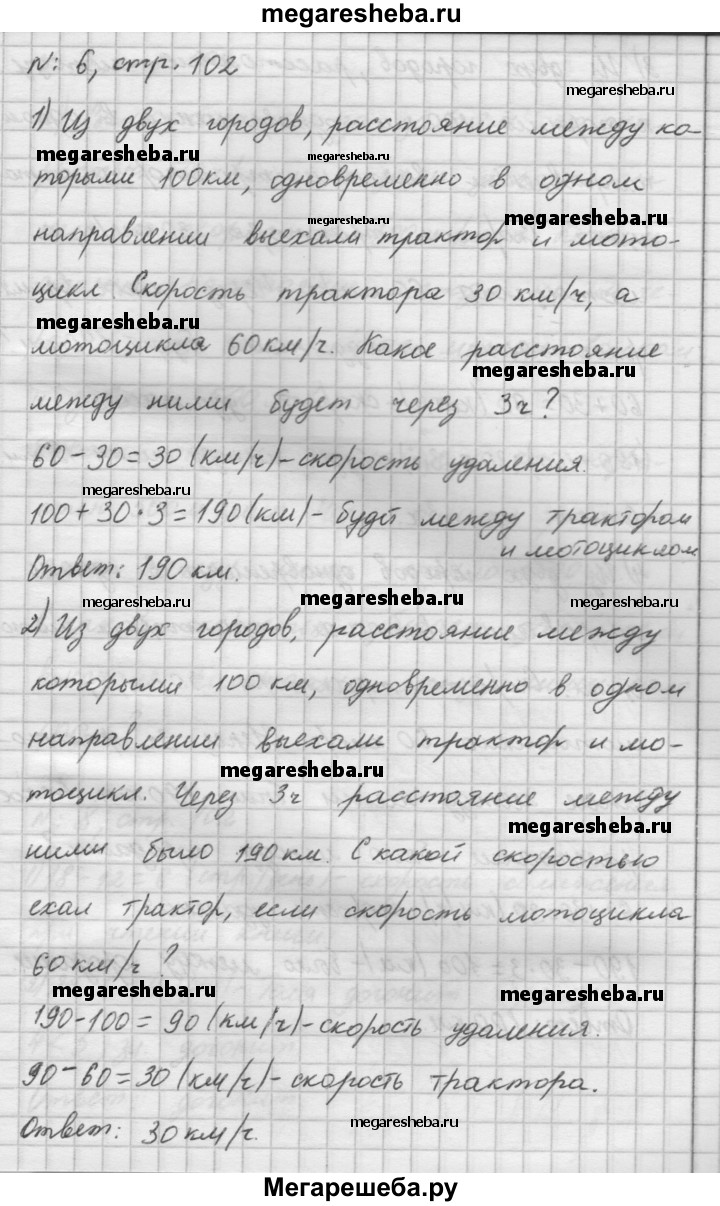 megaresheba.ru
№ 6, стр. 102
megaresheba.ru
1) Из двух городов, расстояние между ко-
megaresheba.ru megaresheba.ru
торыми 100км, одновременно в одном
megaresheba.ru megaresheba.ru
направлении выехали трактор и мото-
цикл. Скорость трактора 30 км/ч, а
megaresheba.ru
мотоцикла 60км/ч. Какое расстояние
megaresheba.ru
между ними будет через 3ч?
60-30=30(км/ч)-скорость удаления.
megaresheba.ru
100+30·3=190(км)- будет между трактором
и мотоциклом
Ответ: 190км.
megaresheba.ru megaresheba.ru megaresheba.ru
2) Из двух городов, расстояние между
которыми 100км, одновременно в одном
направлении выехали трактор и мо-
megaresheba.ru
тоцикл. Через 3ч расстояние между
megaresheba.ru
ними было 190км. С какой скоростью
ехал трактор, если скорость мотоцикла
60км/ч?
megaresheba.ru megaresheba.ru
190-100=90(км/ч)-скорость удаления.
90-60=30(км/ч)-скорость трактора.
megaresheba.ru
Ответ: 30км/ч.
Мегарешеба.ру